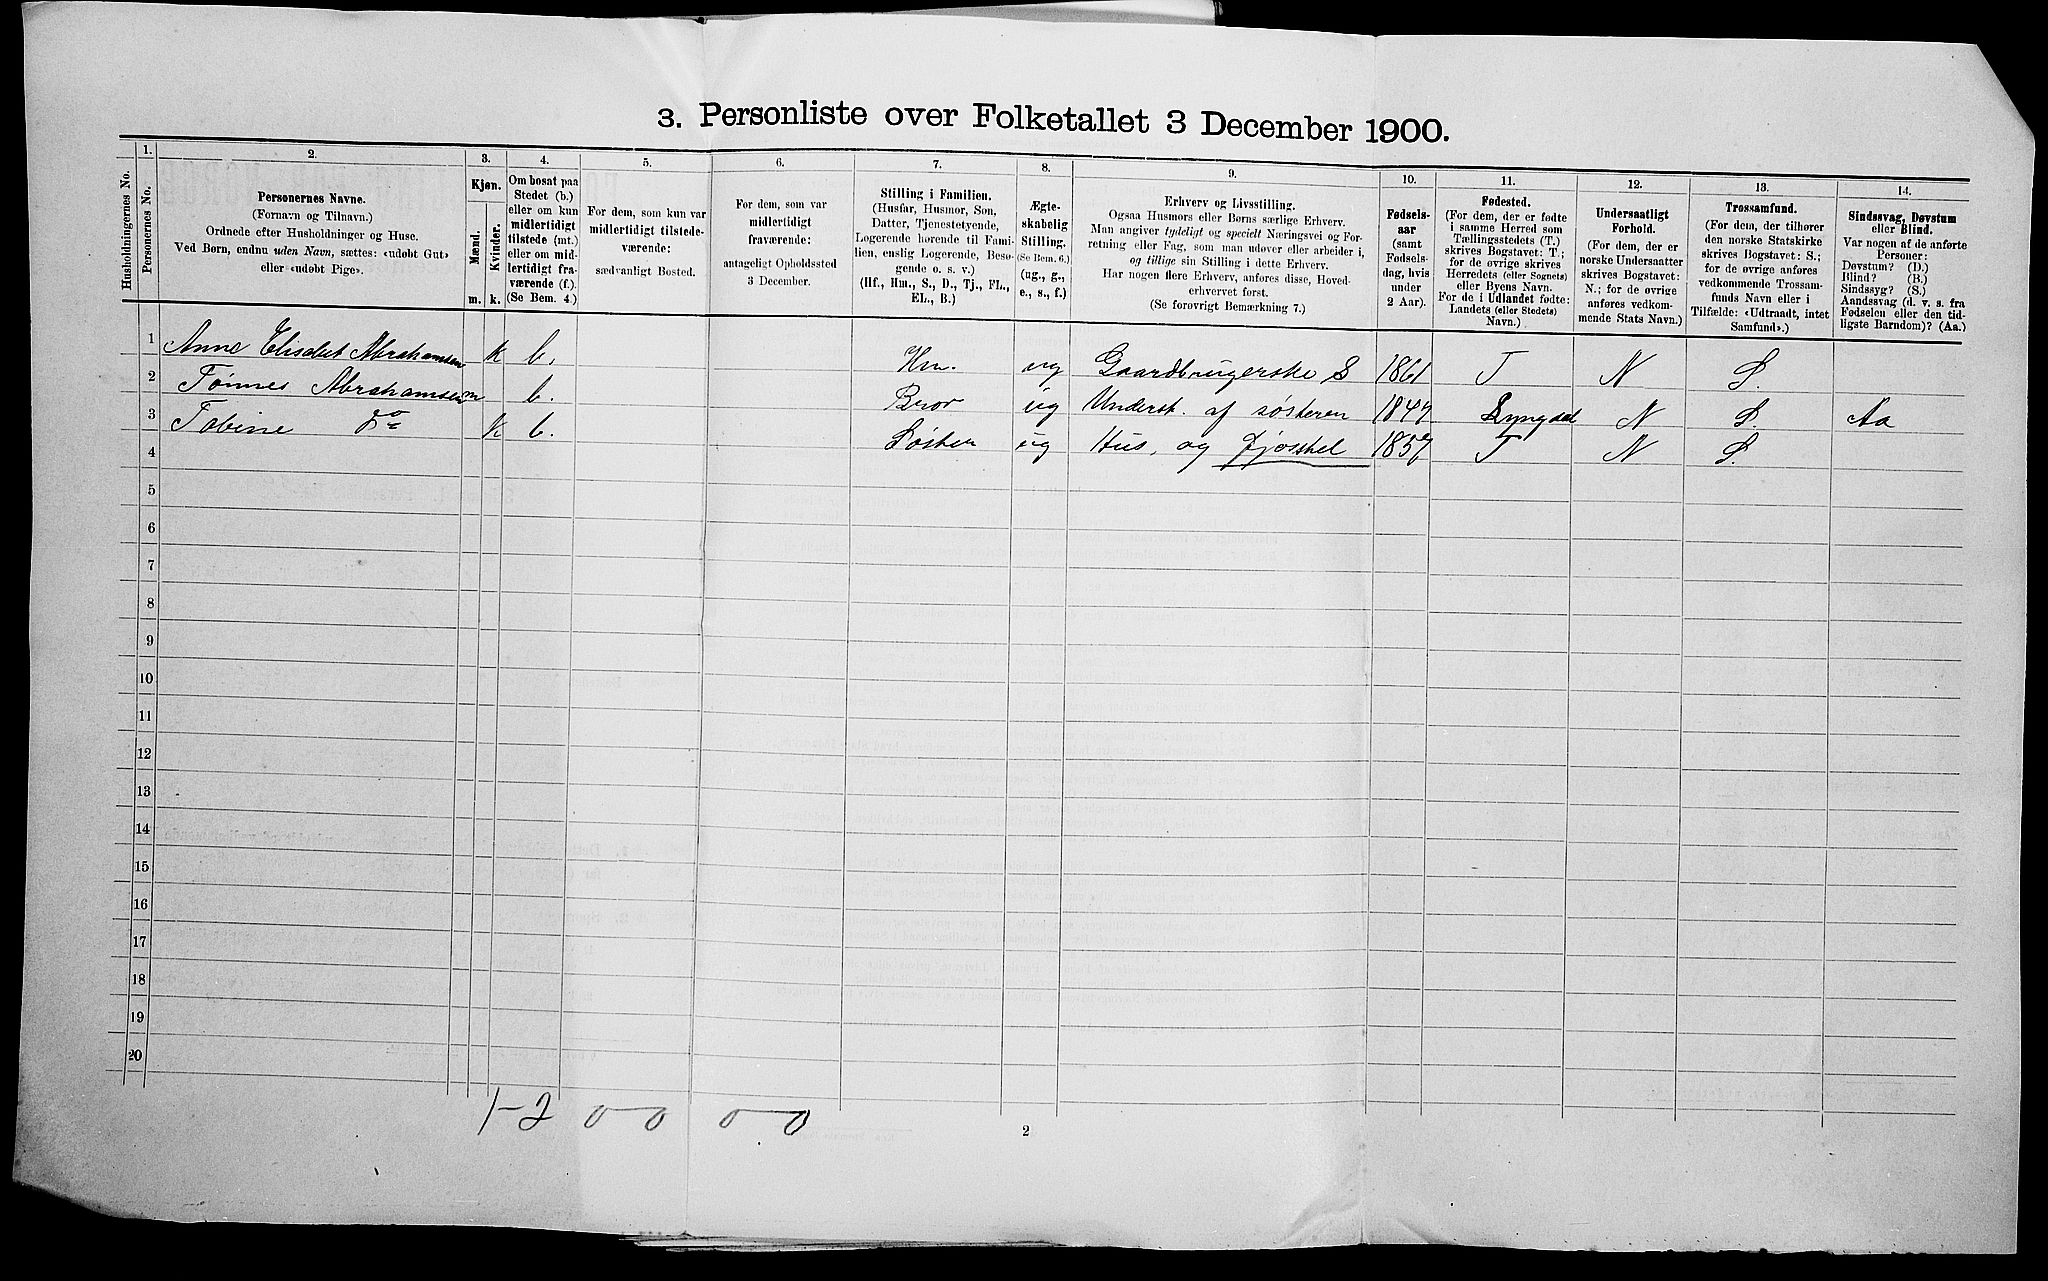 3. Personliste over Folketallet 3 December 1900.
1. 2. 3. 4. 5. 6. 7. 8. 9. 10. 11. 12. 13. 14.
Husholdningernes No.
Personernes No.
Personernes Navne.
(Fornavn og Tilnavn.)
Ordnede efter Husholdninger og Huse.
Ved Børn, endnu uden Navn, sættes: «udøbt Gut»
eller «udøbt Pige».
Kjøn.
Mænd.
Kvinder.
m. k.
Om bosat paa
Stedet (b.)
eller om kun
midlertidigt
tilstede (mt.)
eller om mid-
lertidigt fra-
værende (f.).
(Se Bem. 4.)
For dem, som kun var
midlertidigt tilstede-
værende:
sædvanligt Bosted.
For dem, som var
midlertidigt
fraværende:
antageligt Opholdssted
3 December.
Stilling i Familien.
(Husfar, Husmor, Søn,
Datter, Tjenestetyende,
Logerende hørende til Fami-
lien, enslig Logerende, Besø-
gende o. s. v.)
(Hf., Hm., S., D., Tj., FL.,
EL., B.)
Ægte-
skabelig
Stilling.
(Se Bem. 6.)
(ug., g.,
e., s., f.)
Erhverv og Livsstilling.
Ogsaa Husmors eller Børns særlige Erhverv.
Man angiver tydeligt og specielt Næringsvei og For-
retning eller Fag, som man udøver eller arbeider i,
og tillige sin Stilling i dette Erhverv.
Har nogen flere Erhverv, anføres disse, Hoved-
erhvervet først.
(Se forøvrigt Bemærkning 7.)
Fødsels-
aar
(samt
Fødsels-
dag, hvis
under
2 Aar).
Fødested.
(For dem, der er fødte
i samme Herred som
Tællingsstedets (T.)
skrives Bogstavet: T.;
for de øvrige skrives
Herredets (eller Sognets)
eller Byens Navn.
For de i Udlandet fødte:
Landets (eller Stedets)
Navn.)
Undersaatligt
Forhold.
(For dem, der er
norske Undersaatter
skrives Bogstavet:
N.; for de øvrige
anføres vedkom-
mende Stats Navn.)
Trossamfund.
(For dem, der tilhører
den norske Statskirke
skrives Bogstavet: S.;
for de øvrige anføres
vedkommende Trossam-
funds Navn eller i
Tilfælde: «Udtraadt, intet
Samfund».)
Sindssvag, Døvstum
eller Blind.
Var nogen af de anførte
Personer:
Døvstum? (D.)
Blind? (B.)
Sindssyg? (S.)
Aandssvag (d. v. s. fra
Fødselen eller den tid-
ligste Barndom)? (Aa.)
1 Anne Elisabet Abrahamsen k b. Hm. ug Gaardbrugerske S 1861 T N S.
2 Tønnes Abrahamsen m b. Bror ug Underst. af søsteren 1847 Lyngdal N S. Aa
3 Tobine do k b. Søster ug Hus, og fjosstel 1857 T N S.
4
5
6
7
8
9
10
11
12
13
14
15
16
17
18
19
20
1-2 0-0 0-0
2